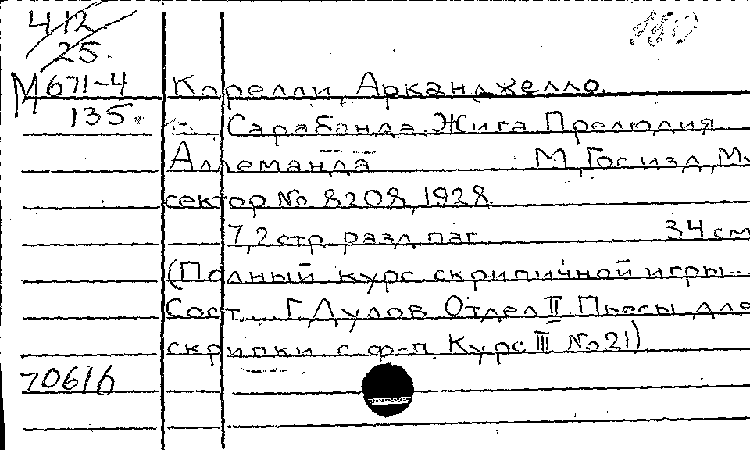 412
25.
110
М 671-4
135.
Корелли, Арканджелло.
Сарабанда, Жига. Прелюдия
Аллеманда М., Гос. изд., Му
сектор № 8208, 1928
7, 2 стр. разл. паг. 34 см
(Полный курс скрипичной игры...
Сост... Г. Дулов. Отдел II Пьесы для
скрипки с ф-п. Курс III № 21)
70616